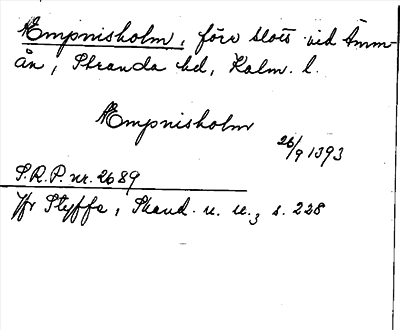 Æmpnisholm, förr slott vid Ämm-
ån, Stranda hd, Kalm. l.
Æmpnisholm
26/9 1393
S.R.P. nr. 2689
Jfr Styffe, Skand. u. u., s. 228